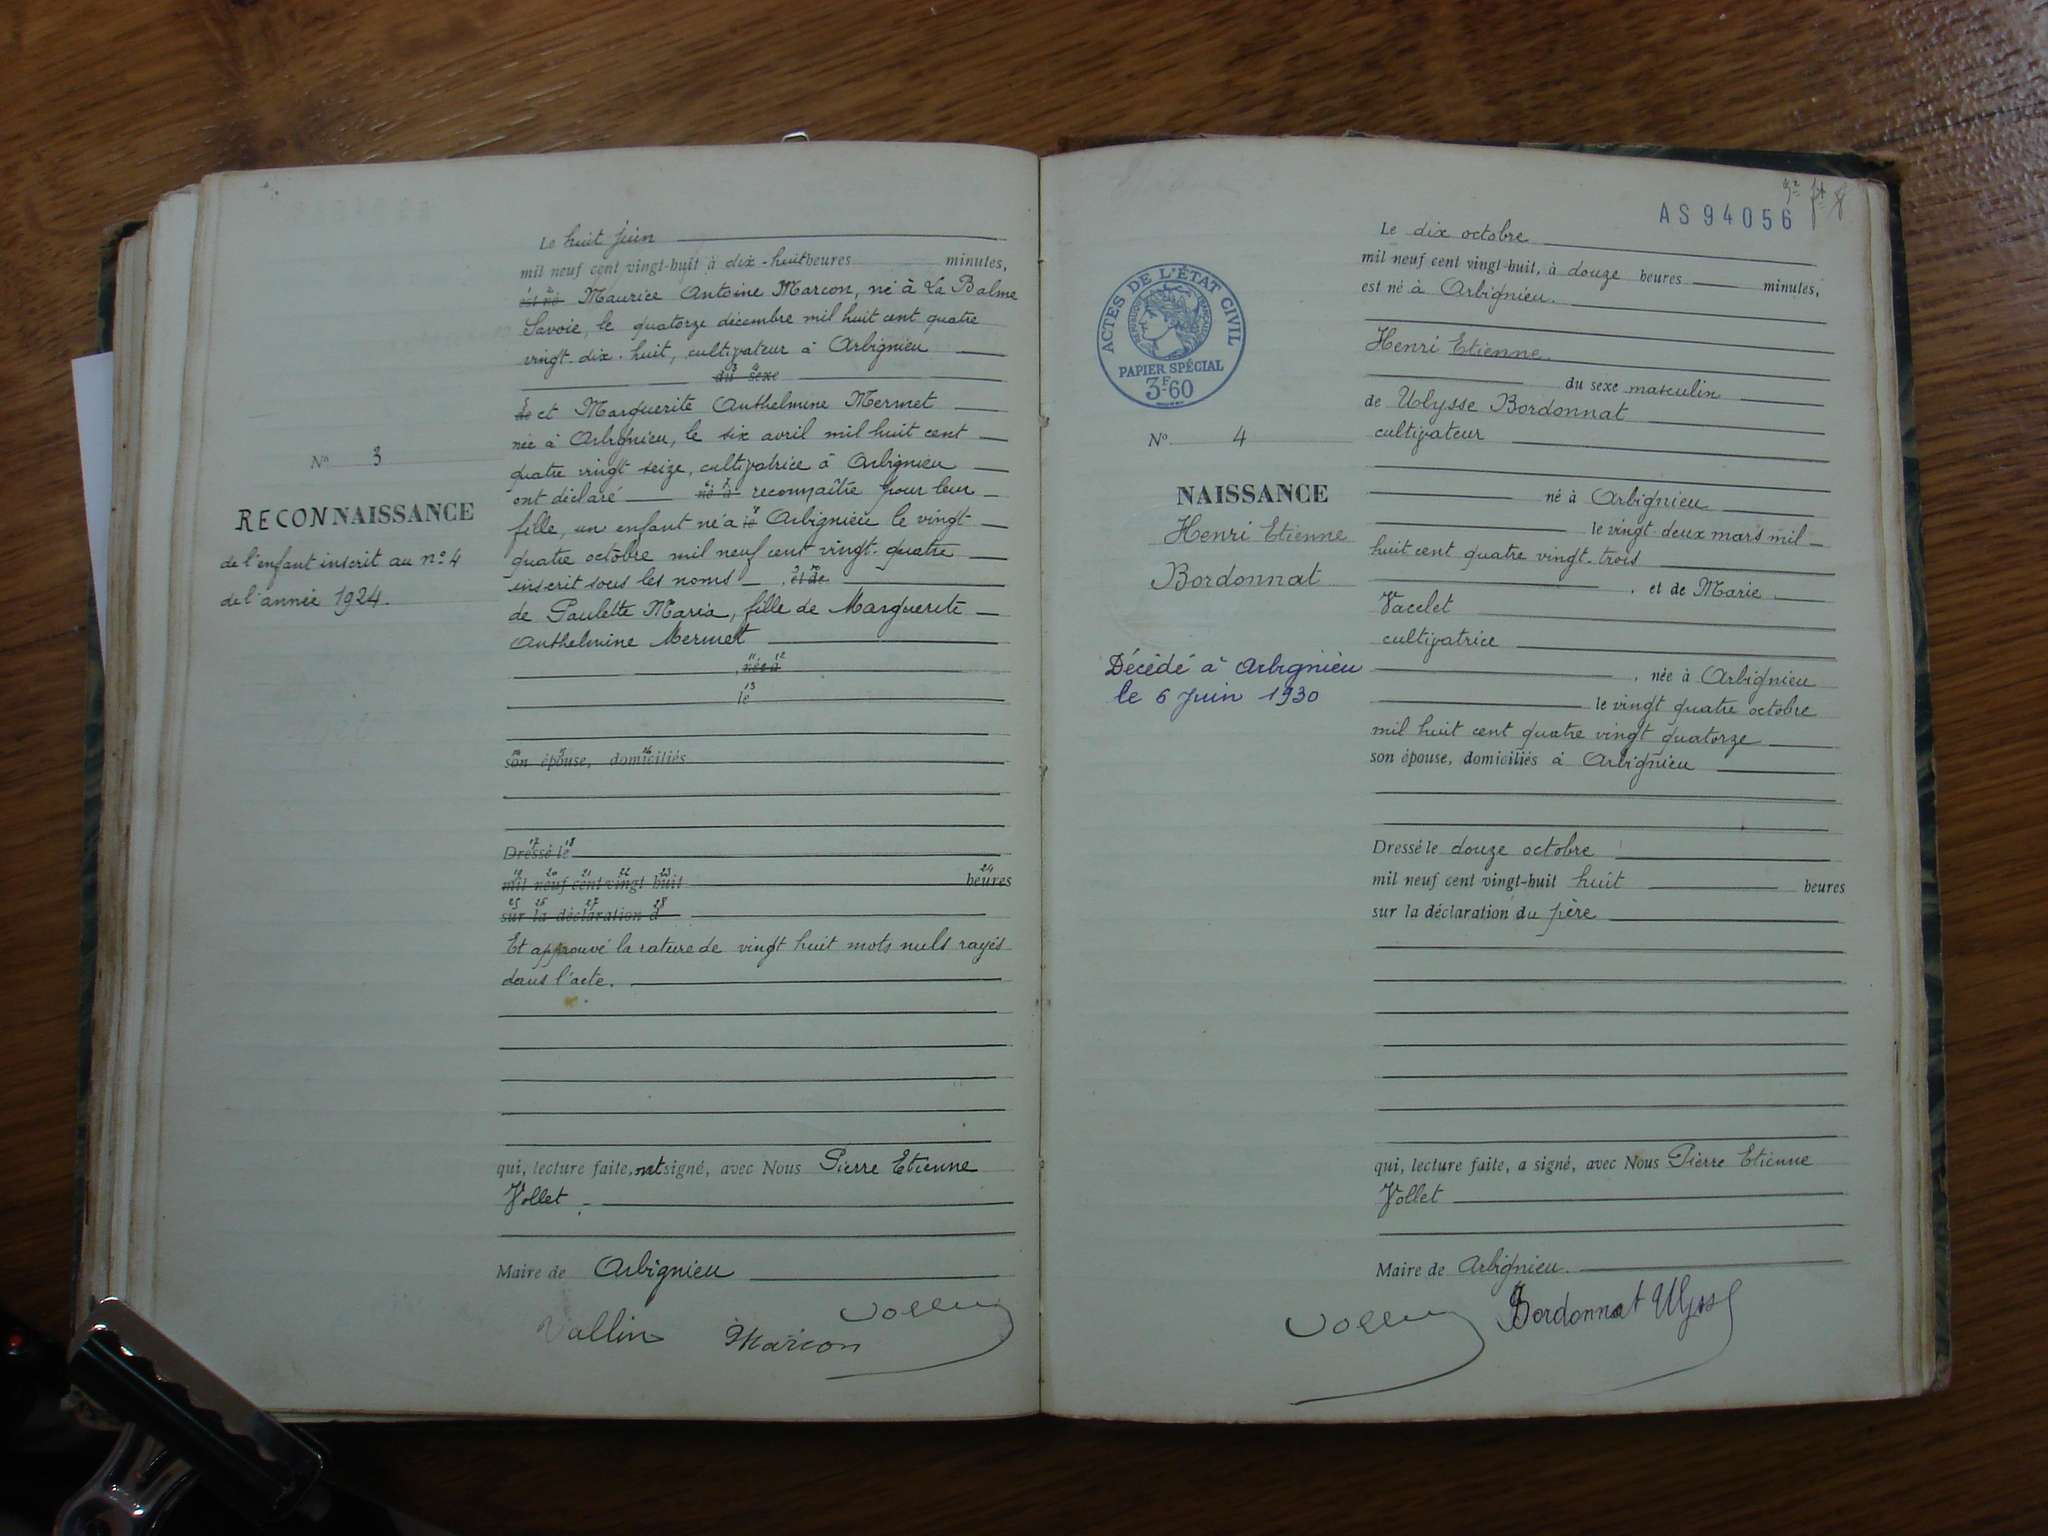 Le huit juin
mil neuf cent vingt-huit à dix-huit heures minutes,
est né Maurice Antoine Marcon, né à La Balme
Savoie, le quatorze décembre mil huit cent quatre
vingt-dix-huit, cultivateur à Arbignieu
du sexe
de et Marguerite Anthelmine Mermet
née à Arbignieu, le six avril mil huit cent
quatre vingt seize, cultivatrice à Arbignieu
ont déclaré né à reconnaître pour leur
fille, un enfant né à le Arbignieu le vingt-
quatre octobre mil neuf cent vingt-quatre
inscrit sous les noms et de
de Paulette Maria, fille de Marguerite
Anthelmine Mermet
née à
le
son épouse, domiciliés
Dressé le
mil neuf cent vingt huit heures
sur la déclaration d
Et approuvé la rature de vingt huit mots nuls rayés
dans l'acte.
qui, lecture faite, ont signé, avec Nous Pierre Etienne
Vollet
Maire de Arbignieu
Vallin Marcon
N° 3
RECONNAISSANCE
de l'enfant inscrit au n° 4
de l'année 1924.
AS 94056
ACTES DE L'ÉTAT CIVIL
RÉPUBLIQUE FRANÇAISE
PAPIER SPÉCIAL
3F60
N° 4
NAISSANCE
Henri Etienne
Bordonnat
Décédé à Arbignieu
le 6 Juin 1930
Le dix octobre
mil neuf cent vingt-huit, à douze heures minutes,
est né à Arbignieu.
Henri Etienne
du sexe masculin
de Ulysse Bordonnat
cultivateur
né à Arbignieu
le vingt-deux mars mil
huit cent quatre vingt-trois
, et de Marie
Vacelet
cultivatrice
, née à Arbignieu
le vingt quatre octobre
mil huit cent quatre vingt quatorze
son épouse, domiciliés à Arbignieu
Dressé le douze octobre
mil neuf cent vingt-huit huit heures
sur la déclaration du père
qui, lecture faite, a signé, avec Nous Pierre Etienne
Vollet
Maire de Arbignieu.
Bordonnat Ulysse